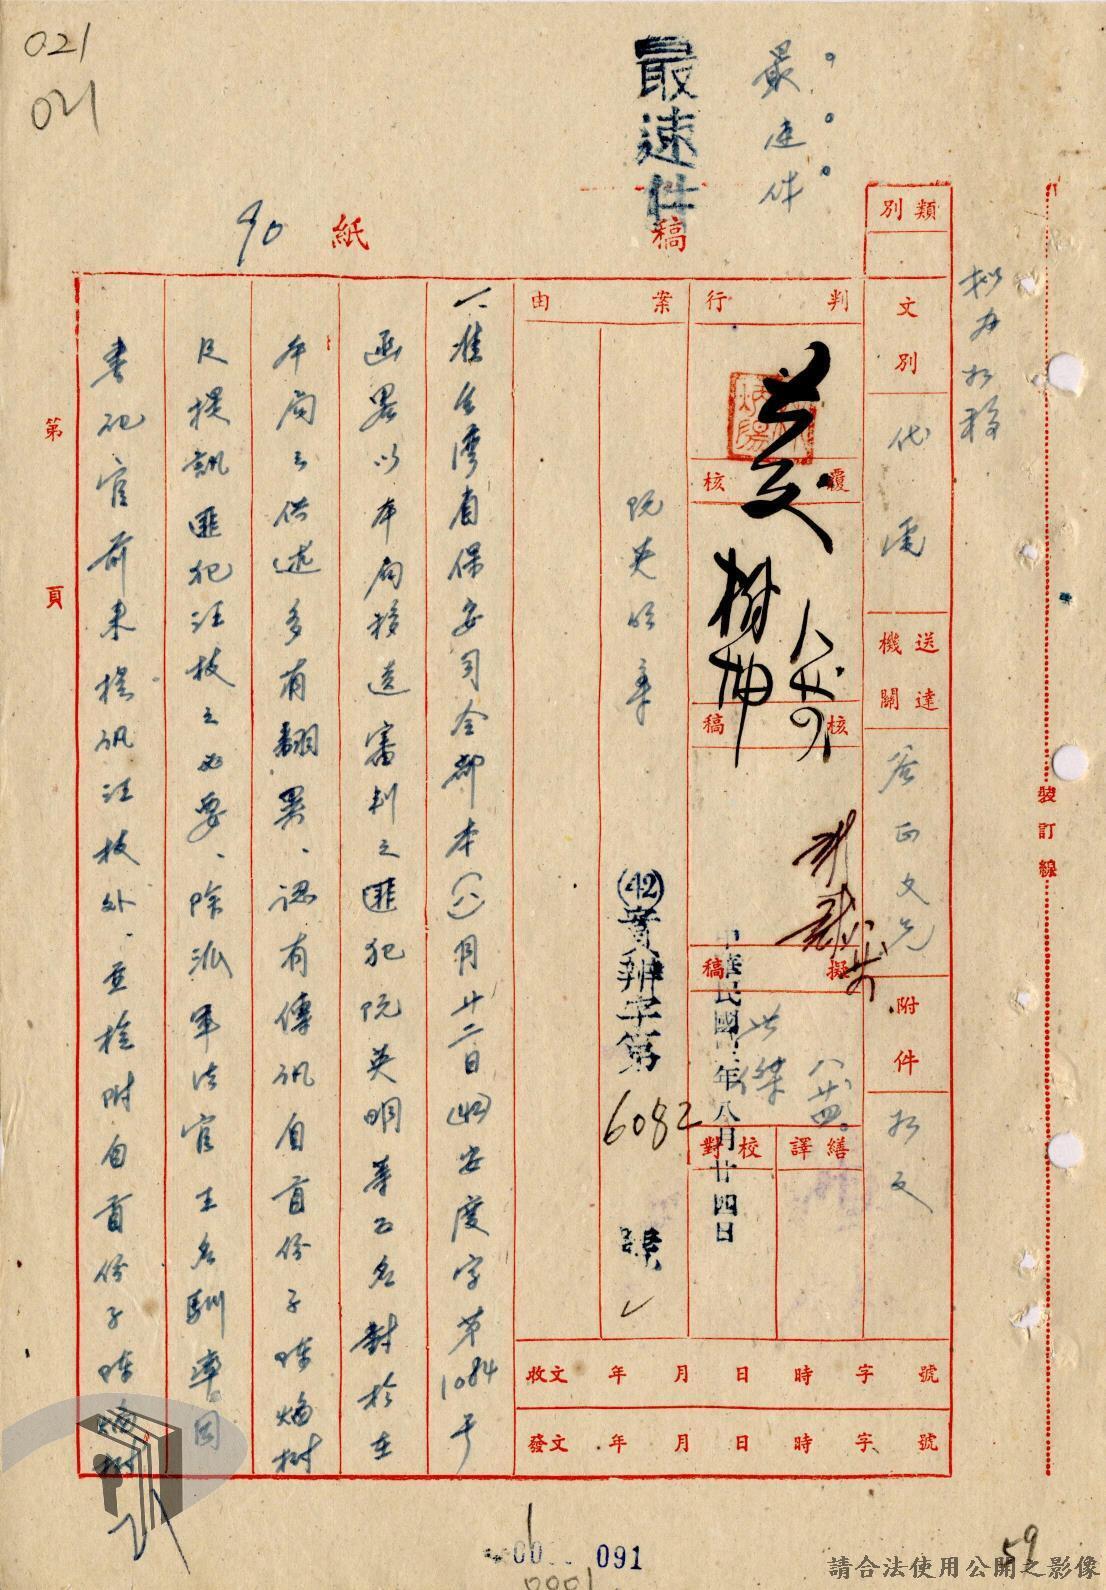 021
021
最速件
最速件
90
稿紙
類別
文別
代電
送達機關
谷正文先
附件
如文
判行
覆核
核稿
擬稿
世傑
八、廿四。
中華民國四二年八月廿四日
繕譯
校對
案由
阮英明等
(42)實辨字第6082號
收文 年 月 日 時 字 號
發文 年 月 日 時 字 號
一、准台灣省保安司令部本(八)月廿二日(42)安度字第1084號
函略以本局移送審判之匪犯阮英明等五名對於在
本局之供述多有翻異、認有傳訊自首份子陳煥樹
及提訊匪犯汪枝之必要、除派軍法官王名馴率同
書記官前來提訊汪枝外、並檢附自首份子陳煥樹
第 頁
裝訂線
091
59
請合法使用公開之影像